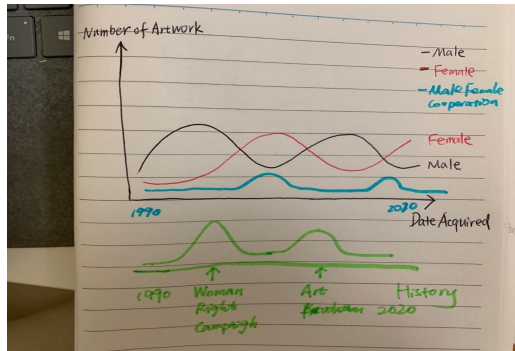 Number of Artwork
- Male
- Female
- Male Female
Cooperation
Female
Male
1990
2020
Date Acquired
1990
Woman
Right
Campaigh
Art
2020
History